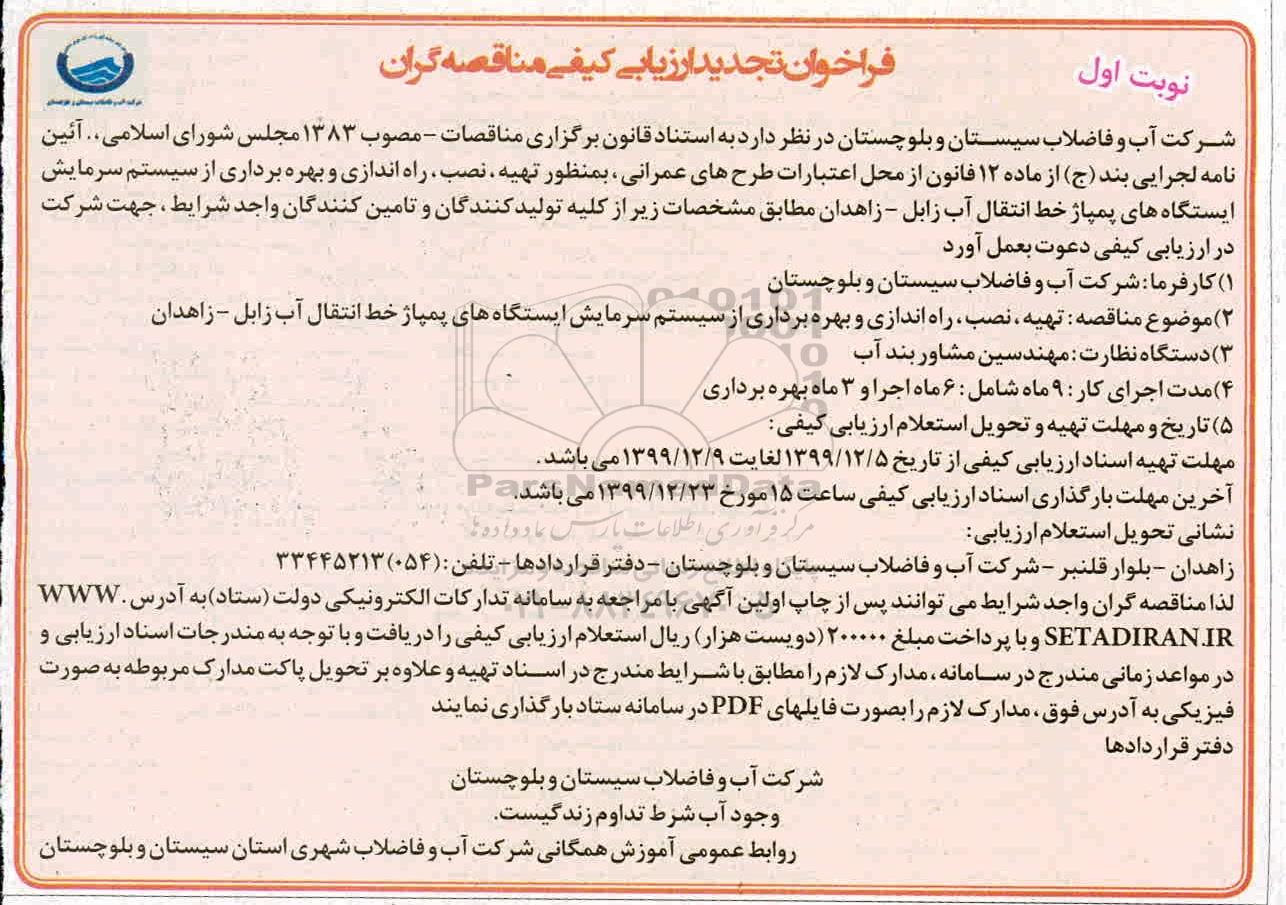 فراخوان تجدید ارزیابی کیفی مناقصه گران
نوبت اول
شرکت آب و فاضلاب سیستان و بلوچستان
شرکت آب و فاضلاب سیستان و بلوچستان در نظر دارد به استناد قانون برگزاری مناقصات – مصوب ۱۳۸۳ مجلس شورای اسلامی،. آئین
نامه لجرایی بند (ج) از ماده ۱۲ قانون از محل اعتبارات طرح های عمرانی، بمنظور تهیه، نصب، راه اندازی و بهره برداری از سیستم سرمایش
ایستگاه های پمپاژ خط انتقال آب زابل – زاهدان مطابق مشخصات زیر از کلیه تولیدکنندگان و تامین کنندگان واجد شرایط، جهت شرکت
در ارزیابی کیفی دعوت بعمل آورد
۱) کارفرما: شرکت آب و فاضلاب سیستان و بلوچستان
۲) موضوع مناقصه: تهیه، نصب، راه اندازی و بهره برداری از سیستم سرمایش ایستگاه های پمپاژ خط انتقال آب زابل – زاهدان
۳) دستگاه نظارت: مهندسین مشاور بند آب
۴) مدت اجرای کار: ۹ ماه شامل: ۶ ماه اجرا و ۳ ماه بهره برداری
۵) تاریخ و مهلت تهیه و تحویل استعلام ارزیابی کیفی:
مهلت تهیه اسناد ارزیابی کیفی از تاریخ ۱۳۹۹/۱۲/۵ لغایت ۱۳۹۹/۱۲/۹ می باشد.
آخرین مهلت بارگذاری اسناد ارزیابی کیفی ساعت ۱۵ مورخ ۱۳۹۹/۱۲/۲۳ می باشد.
نشانی تحویل استعلام ارزیابی:
زاهدان – بلوار قلنبر – شرکت آب و فاضلاب سیستان و بلوچستان – دفتر قراردادها – تلفن: (۰۵۴) ۳۳۴۴۵۲۱۳
لذا مناقصه گران واجد شرایط می توانند پس از چاپ اولین آگهی با مراجعه به سامانه تدارکات الکترونیکی دولت (ستاد) به آدرس WWW.
SETADIRAN.IR و با پرداخت مبلغ ۲۰۰۰۰۰ (دویست هزار) ریال استعلام ارزیابی کیفی را دریافت و با توجه به مندرجات اسناد ارزیابی و
در مواعد زمانی مندرج در سامانه، مدارک لازم را مطابق با شرایط مندرج در اسناد تهیه و علاوه بر تحویل پاکت مدارک مربوطه به صورت
فیزیکی به آدرس فوق، مدارک لازم را بصورت فایلهای PDF در سامانه ستاد بارگذاری نمایند
دفتر قراردادها
شرکت آب و فاضلاب سیستان و بلوچستان
وجود آب شرط تداوم زندگیست.
روابط عمومی آموزش همگانی شرکت آب و فاضلاب شهری استان سیستان و بلوچستان
ParsNamadData
مرکز فرآوری اطلاعات پارس نماد داده ها